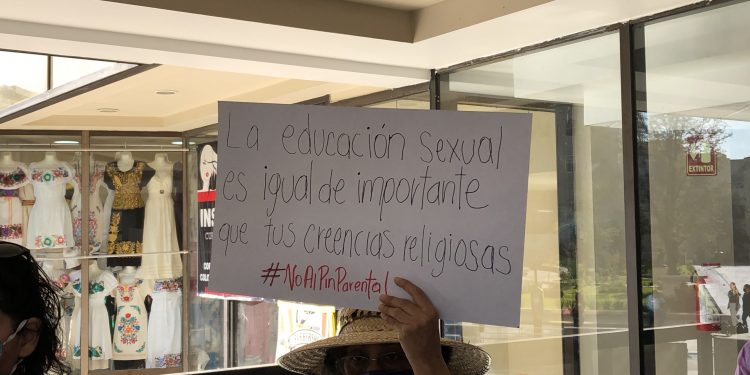 La educación sexual
es igual de importante
que tus creencias religiosas
#NoAlPinParental
EXTINTOR